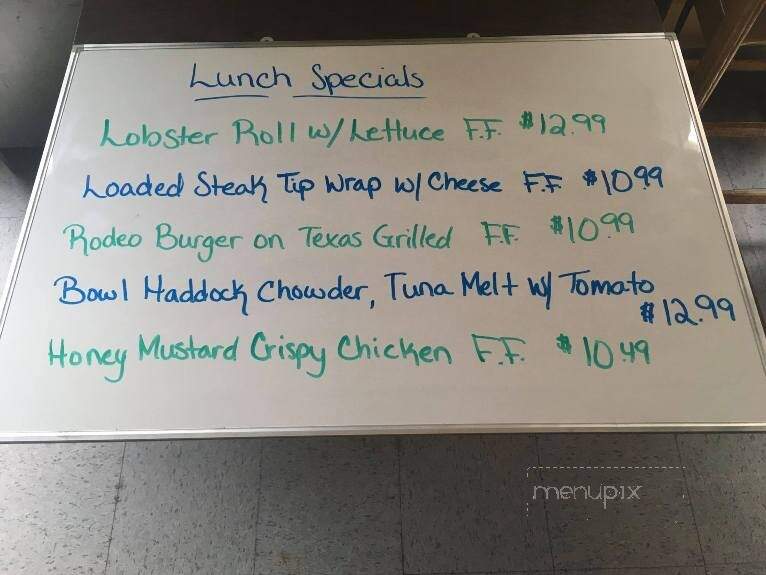 Lunch Specials
Lobster Roll w/ Lettuce F.F. $12.99
Loaded Steak Tip Wrap w/ Cheese F.F. $10.99
Rodeo Burger on Texas Grilled F.F. $10.99
Bowl Haddock Chowder, Tuna Melt w/ Tomato
$12.99
Honey Mustard Crispy Chicken F.F. $10.49
menupix